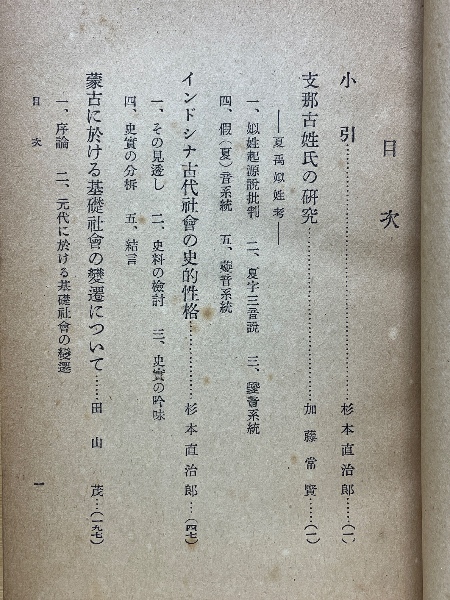 目次
小引……杉本直治郎…(一)
支那古姓氏の研究……加藤常賢……(一)
――夏禹姒姓考――
一、姒姓起源說批判　二、夏字三音說　三、
四、假(夏)音系統　五、
インドシナ古代社會の史的性格……杉本直治郎…(四七)
一、その見透し　二、史料の檢討　三、史實の吟味
四、史實の分析　五、結言
蒙古に於ける基礎社會の變遷について……田山茂…(一九七)
一、序論　二、元代に於ける基礎社會の變遷
目次　一